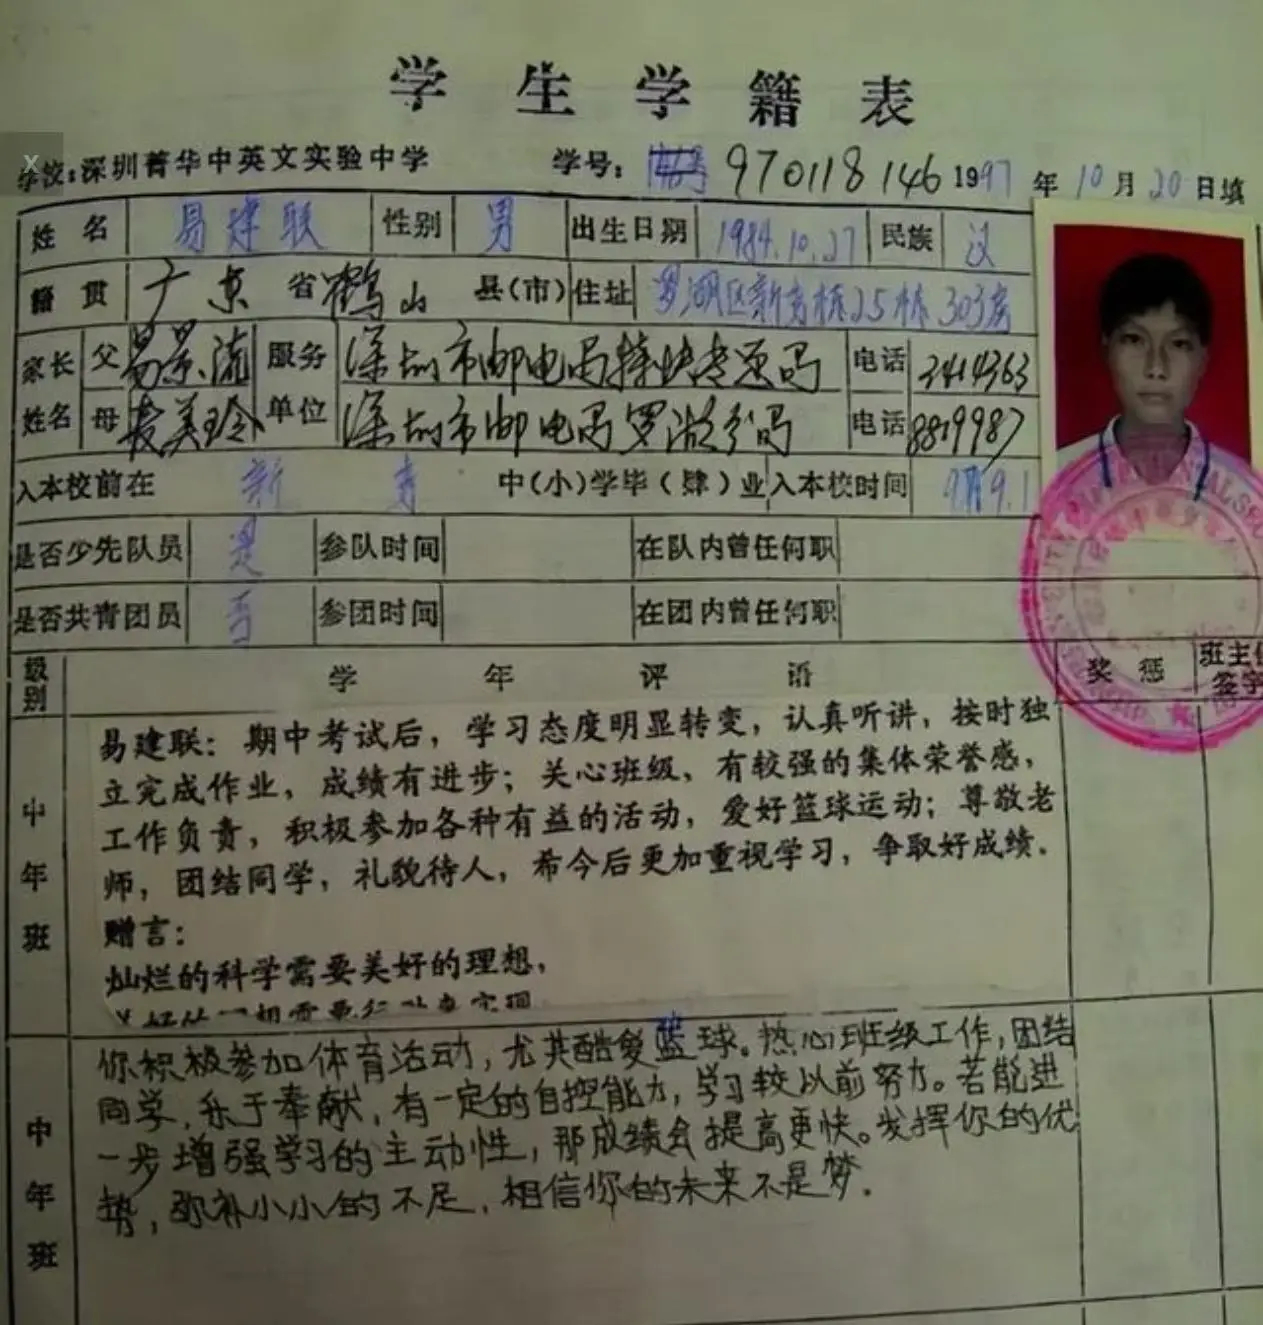 X
学生学籍表
学校:深圳菁华中英文实验中学 学号: 970118146 1997年10月20日填
姓名 易建联 性别 男 出生日期 1984.10.27 民族 汉
籍贯 广东省鹤山县(市) 住址 罗湖区新秀栋25栋303房
家长姓名 父 易景流 服务单位 深圳市邮电局特快专递局 电话 2414363
母 麦美玲 深圳市邮电局罗湖分局 电话 8809987
入本校前在 新秀 中(小)学毕(肄)业 入本校时间 9.1
是否少先队员 是 参队时间 在队内曾任何职
是否共青团员 否 参团时间 在团内曾任何职
级别 学年评语 奖惩 班主任签字
中年班
易建联:期中考试后,学习态度明显转变,认真听讲,按时独
立完成作业,成绩有进步;关心班级,有较强的集体荣誉感,
工作负责,积极参加各种有益的活动,爱好篮球运动;尊敬老
师,团结同学,礼貌待人,希今后更加重视学习,争取好成绩.
赠言:
灿烂的科学需要美好的理想,
中年班
你积极参加体育活动,尤其酷爱篮球。热心班级工作,团结
同学,乐于奉献,有一定的自控能力,学习较以前努力。若能进
一步增强学习的主动性,那成绩会提高更快。发挥你的优
势,弥补小小的不足,相信你的未来不是梦.